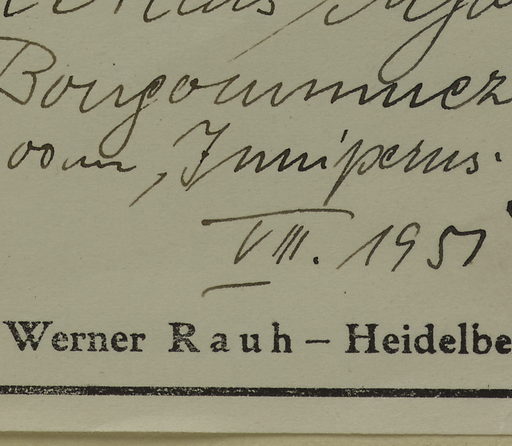 Bourgoumuez
00 m, Juniperus.
VIII. 1951
Werner Rauh – Heidelbe